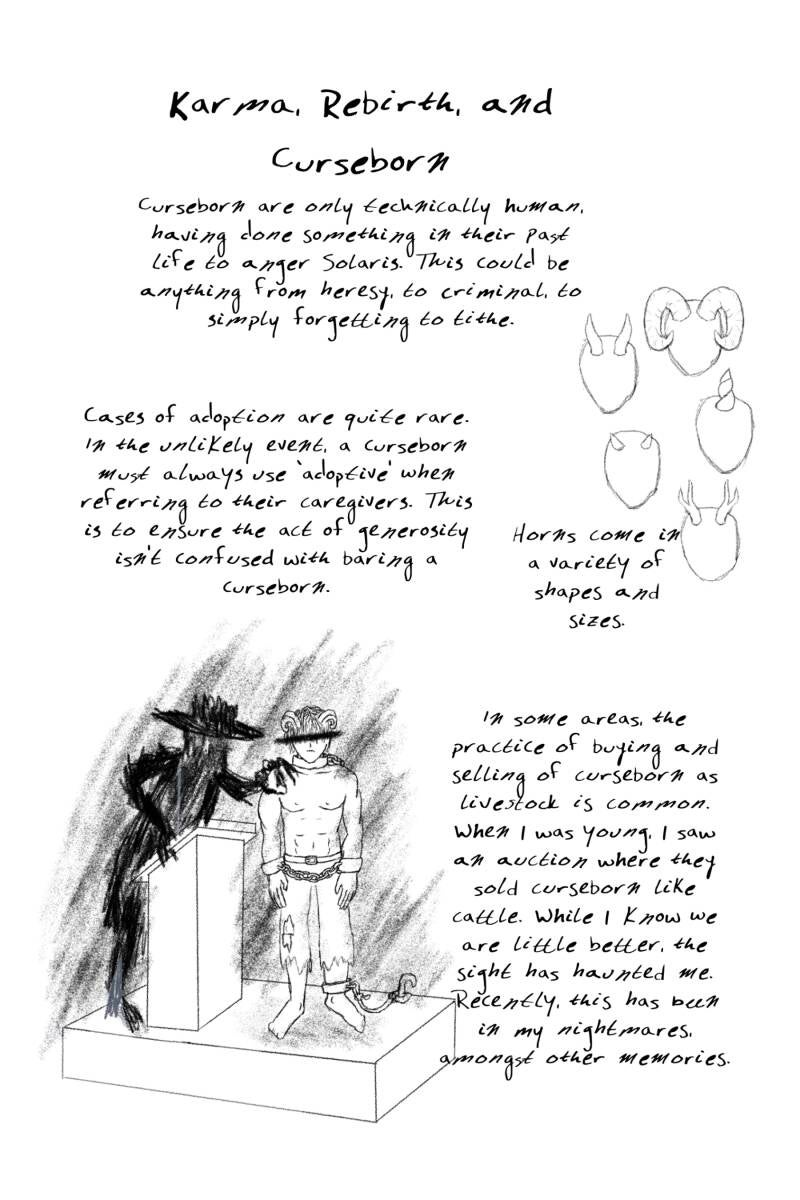 Karma, Rebirth, and
Curseborn
Curseborn are only technically human,
having done something in their past
life to anger Solaris. This could be
anything from heresy, to criminal, to
simply forgetting to tithe.
Cases of adoption are quite rare.
In the unlikely event, a curseborn
must always use 'adoptive' when
referring to their caregivers. This
is to ensure the act of generosity
isn't confused with baring a
curseborn.
Horns come in
a variety of
shapes and
sizes.
In some areas, the
practice of buying and
selling of curseborn as
livestock is common.
When I was young, I saw
an auction where they
sold curseborn like
cattle. While I know we
are little better, the
sight has haunted me.
Recently, this has been
in my nightmares,
amongst other memories.